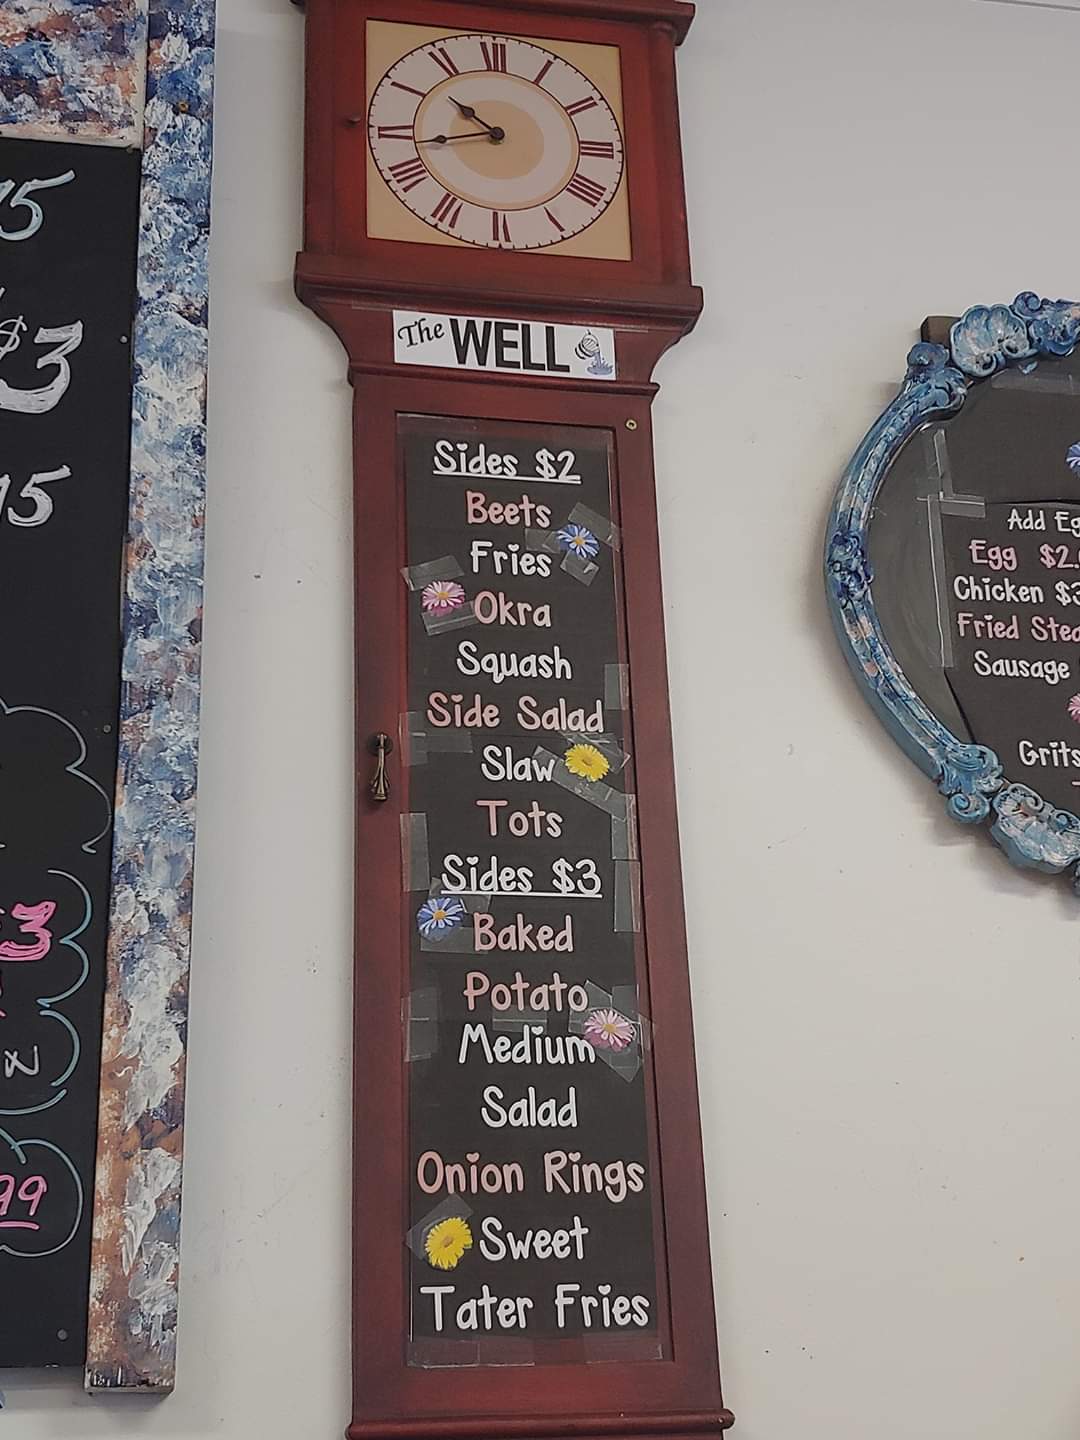 15
$3
15
3
99
XII
I
II
III
IIII
V
VI
VII
VIII
IX
X
XI
The WELL
Sides $2
Beets
Fries
Okra
Squash
Side Salad
Slaw
Tots
Sides $3
Baked
Potato
Medium
Salad
Onion Rings
Sweet
Tater Fries
Add
Egg $2.
Chicken $3
Fried
Sausage
Grits